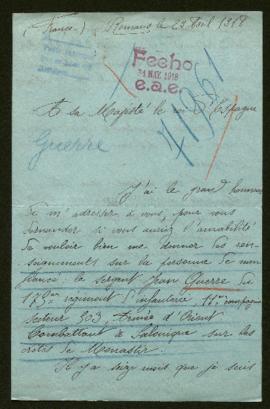 (France) Romans le 23 Avril 1918
Fecho
24 MAY. 1918
e.a.e.
A Sa Majesté le roi d'Espagne
41961
Guerre
J'ai le grand honneur
de m'adresser à vous, pour vous
demander si vous auriez l'amabilité
de vouloir bien me donner des ren-
seignements sur la personne de mon
fiancé le sergent Jean Guerre du
175me regiment d'infanterie 11me compagnie
secteur 503 Armée d'Orient
Combattant à Salonique sur les
côtés de Monastir.
Il y a seize mois que je suis